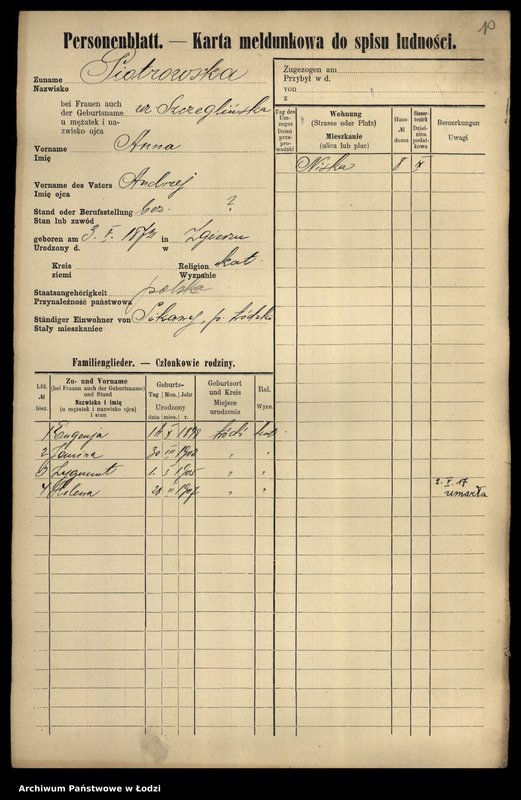 10
Personenblatt. — Karta meldunkowa do spisu ludności.
Zuname Piotrowska
Nazwisko
bei Frauen auch
der Geburtsname
u mężatek i na-
zwisko ojca
Vorname Anna
Imię
Vorname des Vaters Andrzej
Imię ojca
Stand oder Berufsstellung bez. ?
Stan lub zawód
geboren am 3. V. 1873 in Zgierzu
Urodzony d. w
Kreis Religion kat.
ziemi Wyznanie
Staatsangehörigkeit polska
Przynależność państwowa
Ständiger Einwohner von p. łódzki
Stały mieszkaniec
Zugezogen am
Przybył w d.
von
z
Tag des Um-zuges Dzień prze-prowadzki
Wohnung (Strasse oder Platz) Mieszkanie (ulica lub plac)
Haus- № domu
Steuer-bezirk Dziel-nica podat-kowa
Bemerkungen Uwagi
Niska 8 X
Familienglieder. — Członkowie rodziny.
Lfd. № biez.
Zu- und Vorname (bei Frauen auch der Geburtsname) und Stand Nazwisko i imię (u mężatek i nazwisko ojca) i stan
Geburts- Tag Mon. Jahr Urodzony dnia mies. r.
Geburtsort und Kreis Miejsce urodzenia
Rel. Wyzn.
1 Eugenja 14 X 1899 Łódź kat.
2 Janina 30 III 1902 " "
3 Zygmunt 1. I 1905 " "
4 Helena 28 II 1907 " " 2. V. 17
umarła
Archiwum Państwowe w Łodzi